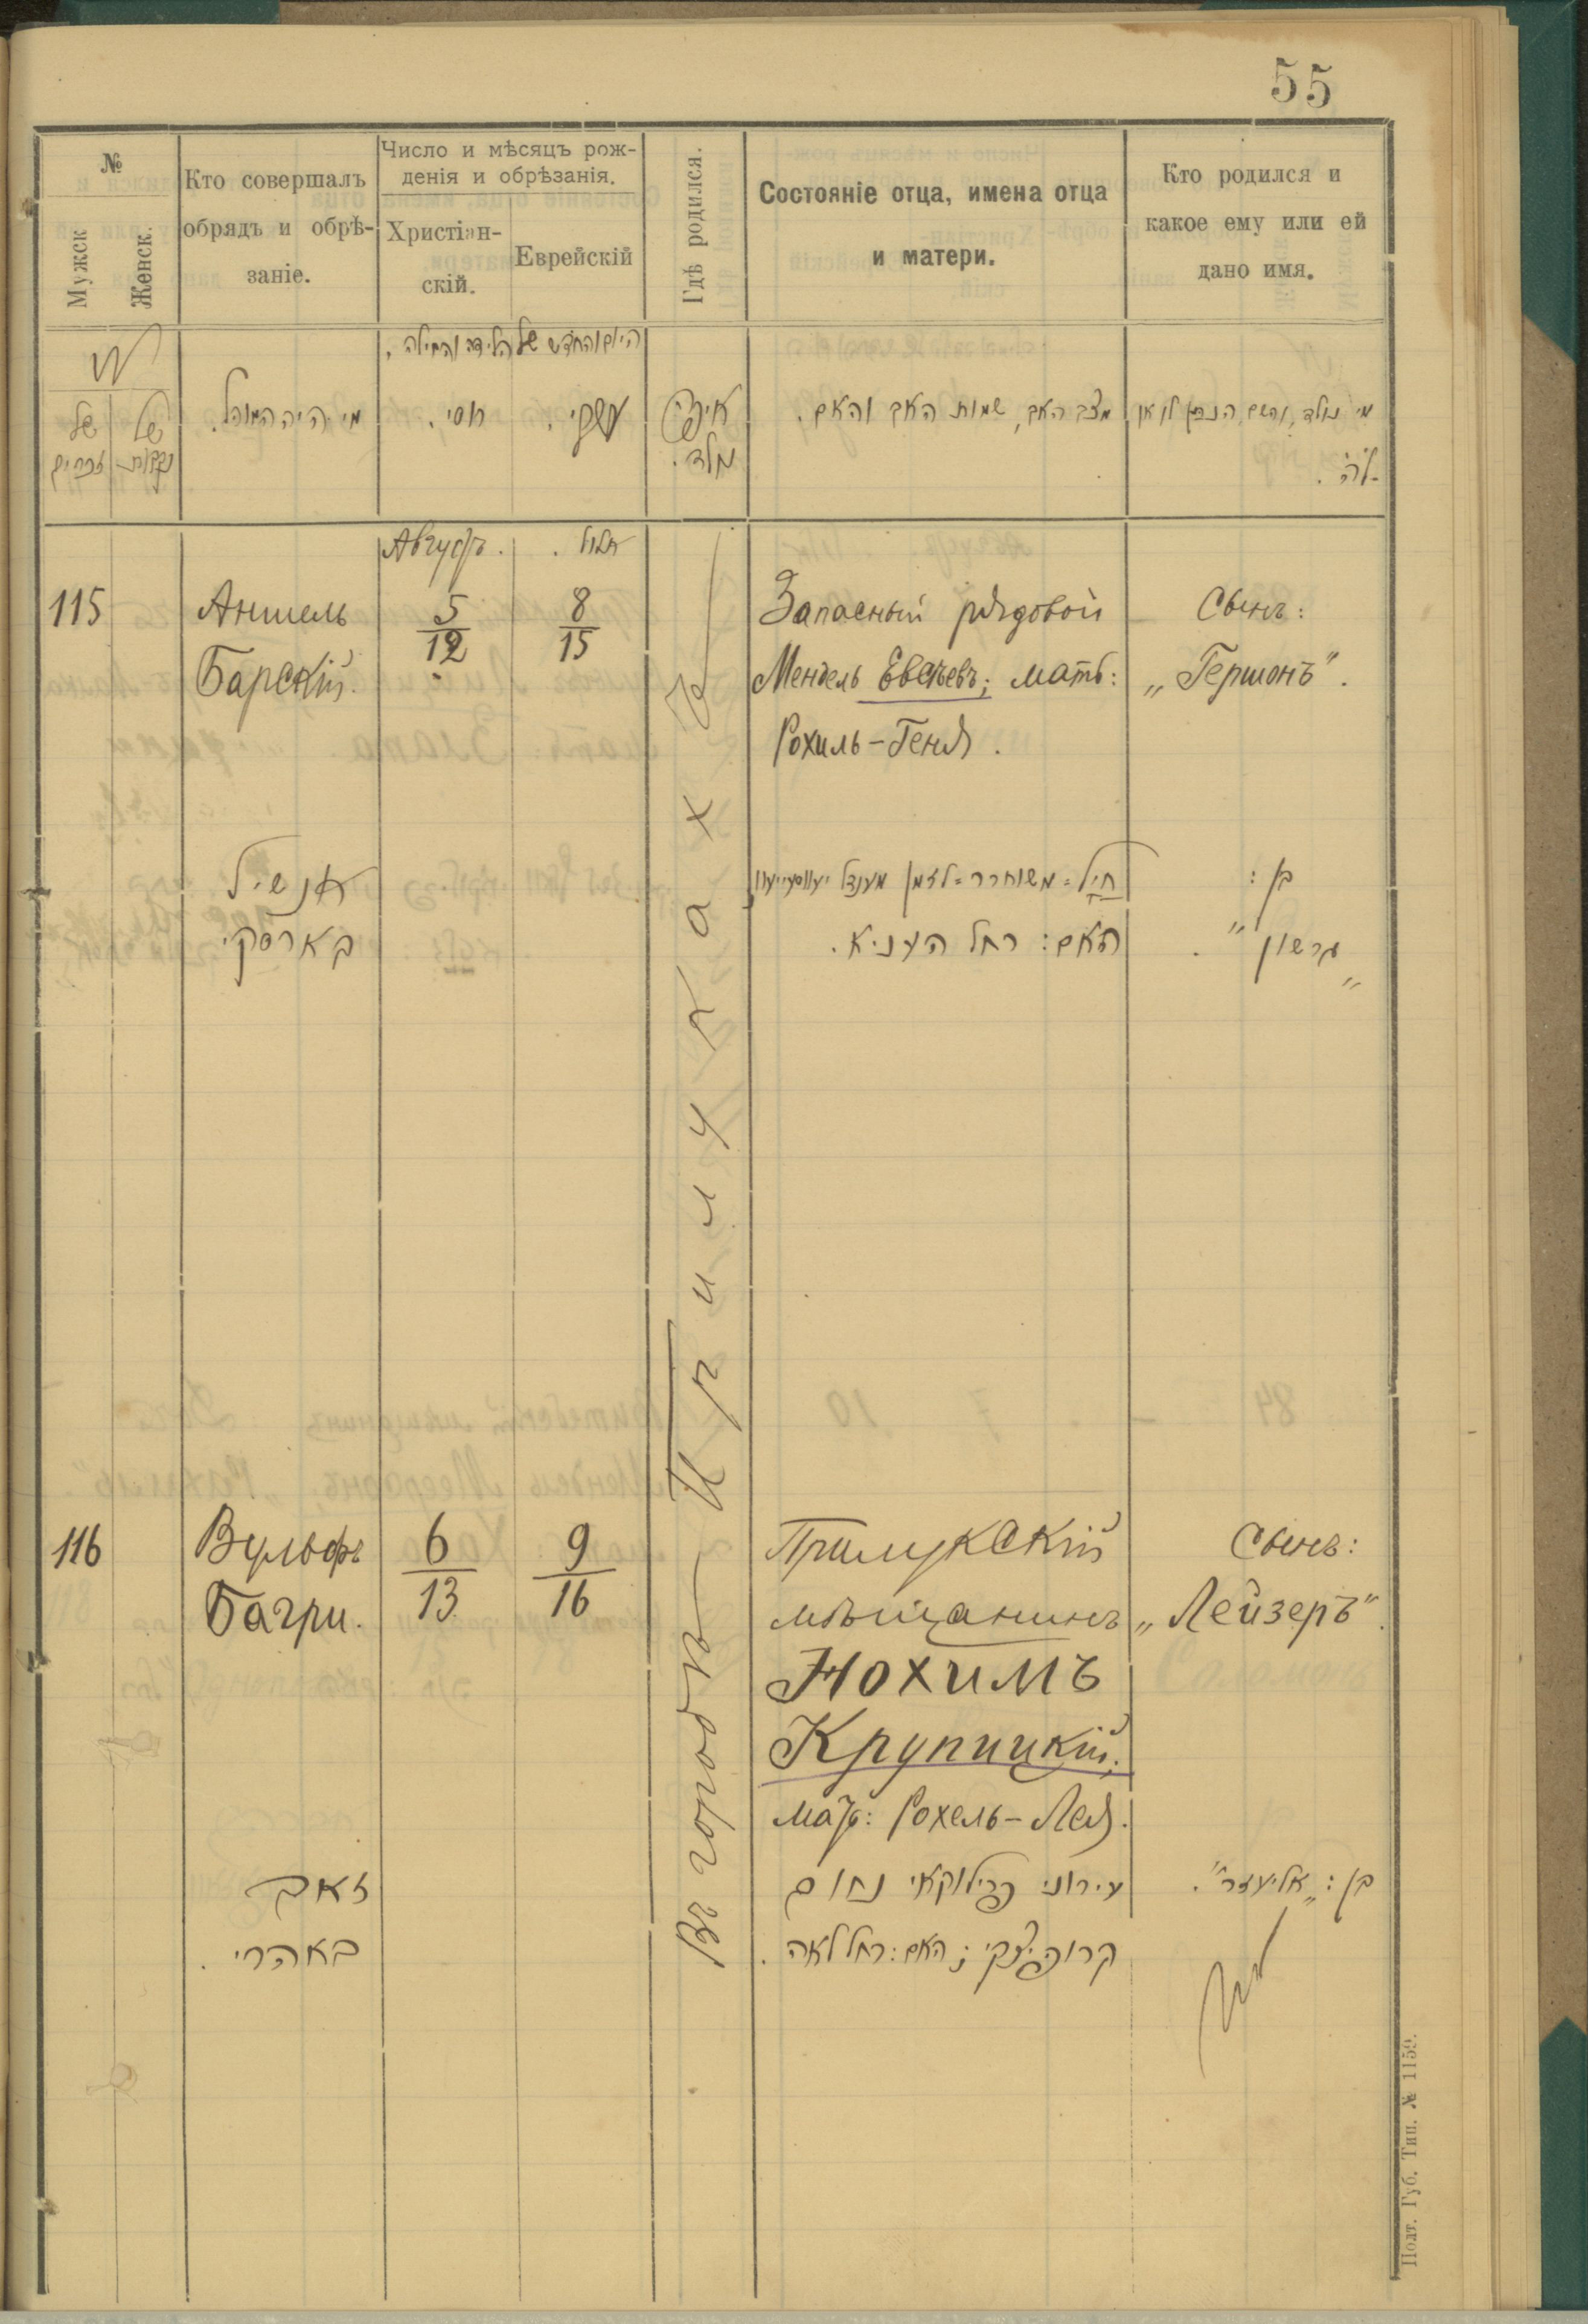 55
№
Мужск
Женск.
Кто совершалъ
обрядъ и обрѣ-
заніе.
Число и мѣсяцъ рож-
денія и обрѣзанія.
Христіан-
скій.
Еврейскій
Гдѣ родился.
Состояніе отца, имена отца
и матери.
Кто родился и
какое ему или ей
дано имя.
של
זכרים
של
נקבות
מי היה המוהל.
היום והחדש של הלידה והמילה.
רוסי.
עברי.
איפה
נולד.
מצב האב, שמות האב והאם.
מי נולד, והשם הנתן לו או
לה.
Августъ.
אלול.
115
Аншель
Барскій.
5
12
8
15
Запасный рядовой
Мендель Евсѣевъ; мать:
Рохиль-Геня.
Сынъ:
„Гершонъ".
אנשיל
בארסקי
חיל=משוחרר=לזמן מענדל יעווסייעוו
האם: רחל העניא.
בן:
„גרשון".
Въ городѣ Прилукахъ
116
Вульфъ
Багри.
6
13
9
16
Прилукскій
мѣщанинъ
Нохимъ
Крупицкій;
мать: Рохель-Лея.
Сынъ:
„Лейзеръ".
זאב
באהרי.
עירוני פרילוקאי נחום
קרופיצקי; האם: רחל לאה.
בן: „אליעזר".
Полт. Губ. Тип. № 1159.